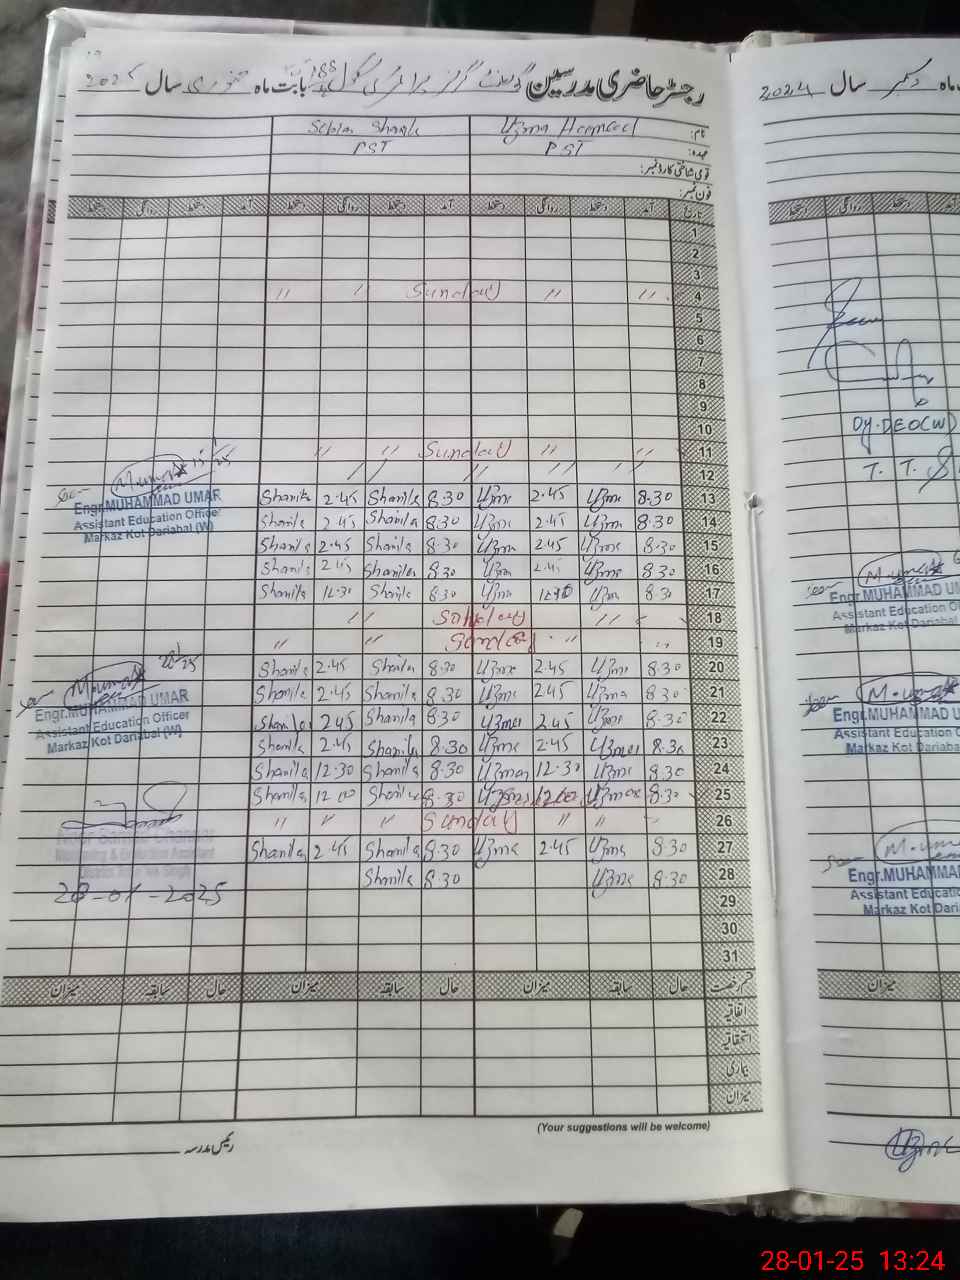 رجسٹر حاضری مدرسین گورنمنٹ گرلز پرائمری سکول 188 بابت ماہ جنوری سال 2025
نام: Uzma Hameed Sobia Shanila
عہدہ: PST PST
قومی شناختی کارڈ نمبر:
فون نمبر:
تاریخ آمد دستخط روانگی دستخط آمد دستخط روانگی دستخط آمد دستخط روانگی دستخط
1
2
3
" " Sunday " " 4
5
6
7
8
9
10
" " Sunday " " 11
" " " " " 12
Shanila 2.45 Shanila 8.30 Uzma 2.45 Uzma 8.30 13
Shanila 2.45 Shanila 8.30 Uzma 2.45 Uzma 8.30 14
Shanila 2.45 Shanila 8.30 Uzma 2.45 Uzma 8.30 15
Shanila 2.45 Shanila 8.30 Uzma 2.45 Uzma 8.30 16
Shanila 12.30 Shanila 8.30 Uzma Uzma 8.30 17
" " " 18
" " Sunday " " 19
Shanila 2.45 Shanila 8.30 Uzma 2.45 Uzma 8.30 20
Shanila 2.45 Shanila 8.30 Uzma 2.45 Uzma 8.30 21
Shanila 2.45 Shanila 8.30 Uzma 2.45 Uzma 8.30 22
Shanila 2.45 Shanila 8.30 Uzma 2.45 Uzma 8.30 23
Shanila 12.30 Shanila 8.30 Uzma 12.30 Uzma 8.30 24
Shanila 12.00 Shanila 8.30 Uzma 12.00 Uzma 8.30 25
" " " Sunday " " " 26
Shanila 2.45 Shanila 8.30 Uzma 2.45 Uzma 8.30 27
Shanila 8.30 Uzma 8.30 28
29
30
31
قسم رخصت حال سابقہ میزان حال سابقہ میزان حال سابقہ میزان
اتفاقیہ
استحقاقیہ
بیماری
میزان
(Your suggestions will be welcome)
رئیس مدرسہ
M.umar 15/1/25
Engr.MUHAMMAD UMAR
Assistant Education Officer
Markaz Kot Dariabal (W)
M.umar
Engr.MUHAMMAD UMAR
Assistant Education Officer
Markaz Kot Dariabal (W)
Monitoring & Evaluation Assistant
28-01-2025
ماہ دسمبر سال 2024
آمد دستخط روانگی دستخط
Dy.DEO(W)
T.T.S
M.umar
Engr.MUHAMMAD U
Assistant Education O
Markaz Kot Dariabal
M.umar
Engr.MUHAMMAD U
Assistant Education O
Markaz Kot Dariab
M.um
Engr.MUHAMMA
Assistant Educatio
Markaz Kot Dari
میزان
Uzma
28-01-25 13:24